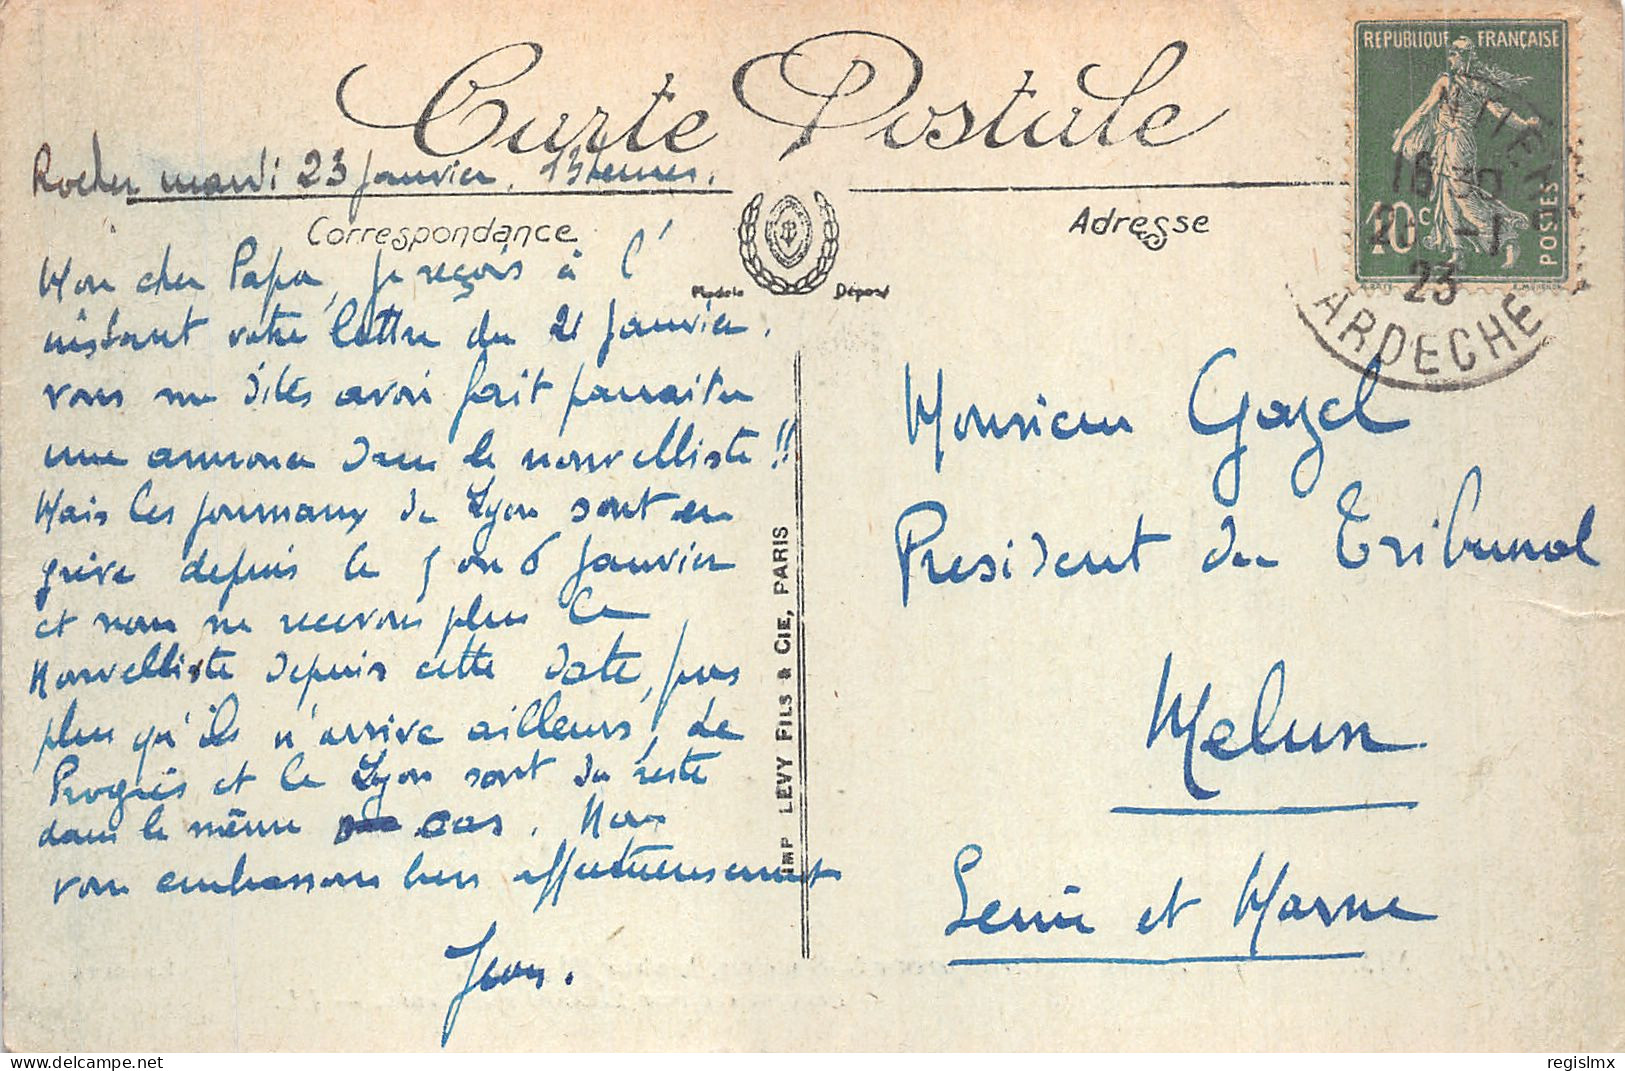 Carte Postale
Rocher mardi 23 Janvier. 13 heures.
Correspondance
Mon cher Papa, je reçois à l'
instant votre lettre du 21 Janvier.
vous me dites avoir fait paraitre
une annonce dans le nouvelliste !!
Mais les journaux de Lyon sont en
grève depuis le 5 ou 6 Janvier
et nous ne recevons plus le
Nouvelliste depuis cette date, pas
plus qu'ils n'arrive ailleurs, Le
Progrès et le Lyon sont du reste
dans le même cas. Nous
vous embrassons bien affectueusement
Jean.
Modèle Déposé
IMP LEVY FILS & CIE, PARIS
Adresse
REPUBLIQUE FRANÇAISE
10c
POSTES
16 30
-1
23
ARDECHE
Monsieur Gazel
President du Tribunal
Melun
Seine et Marne
regislmx